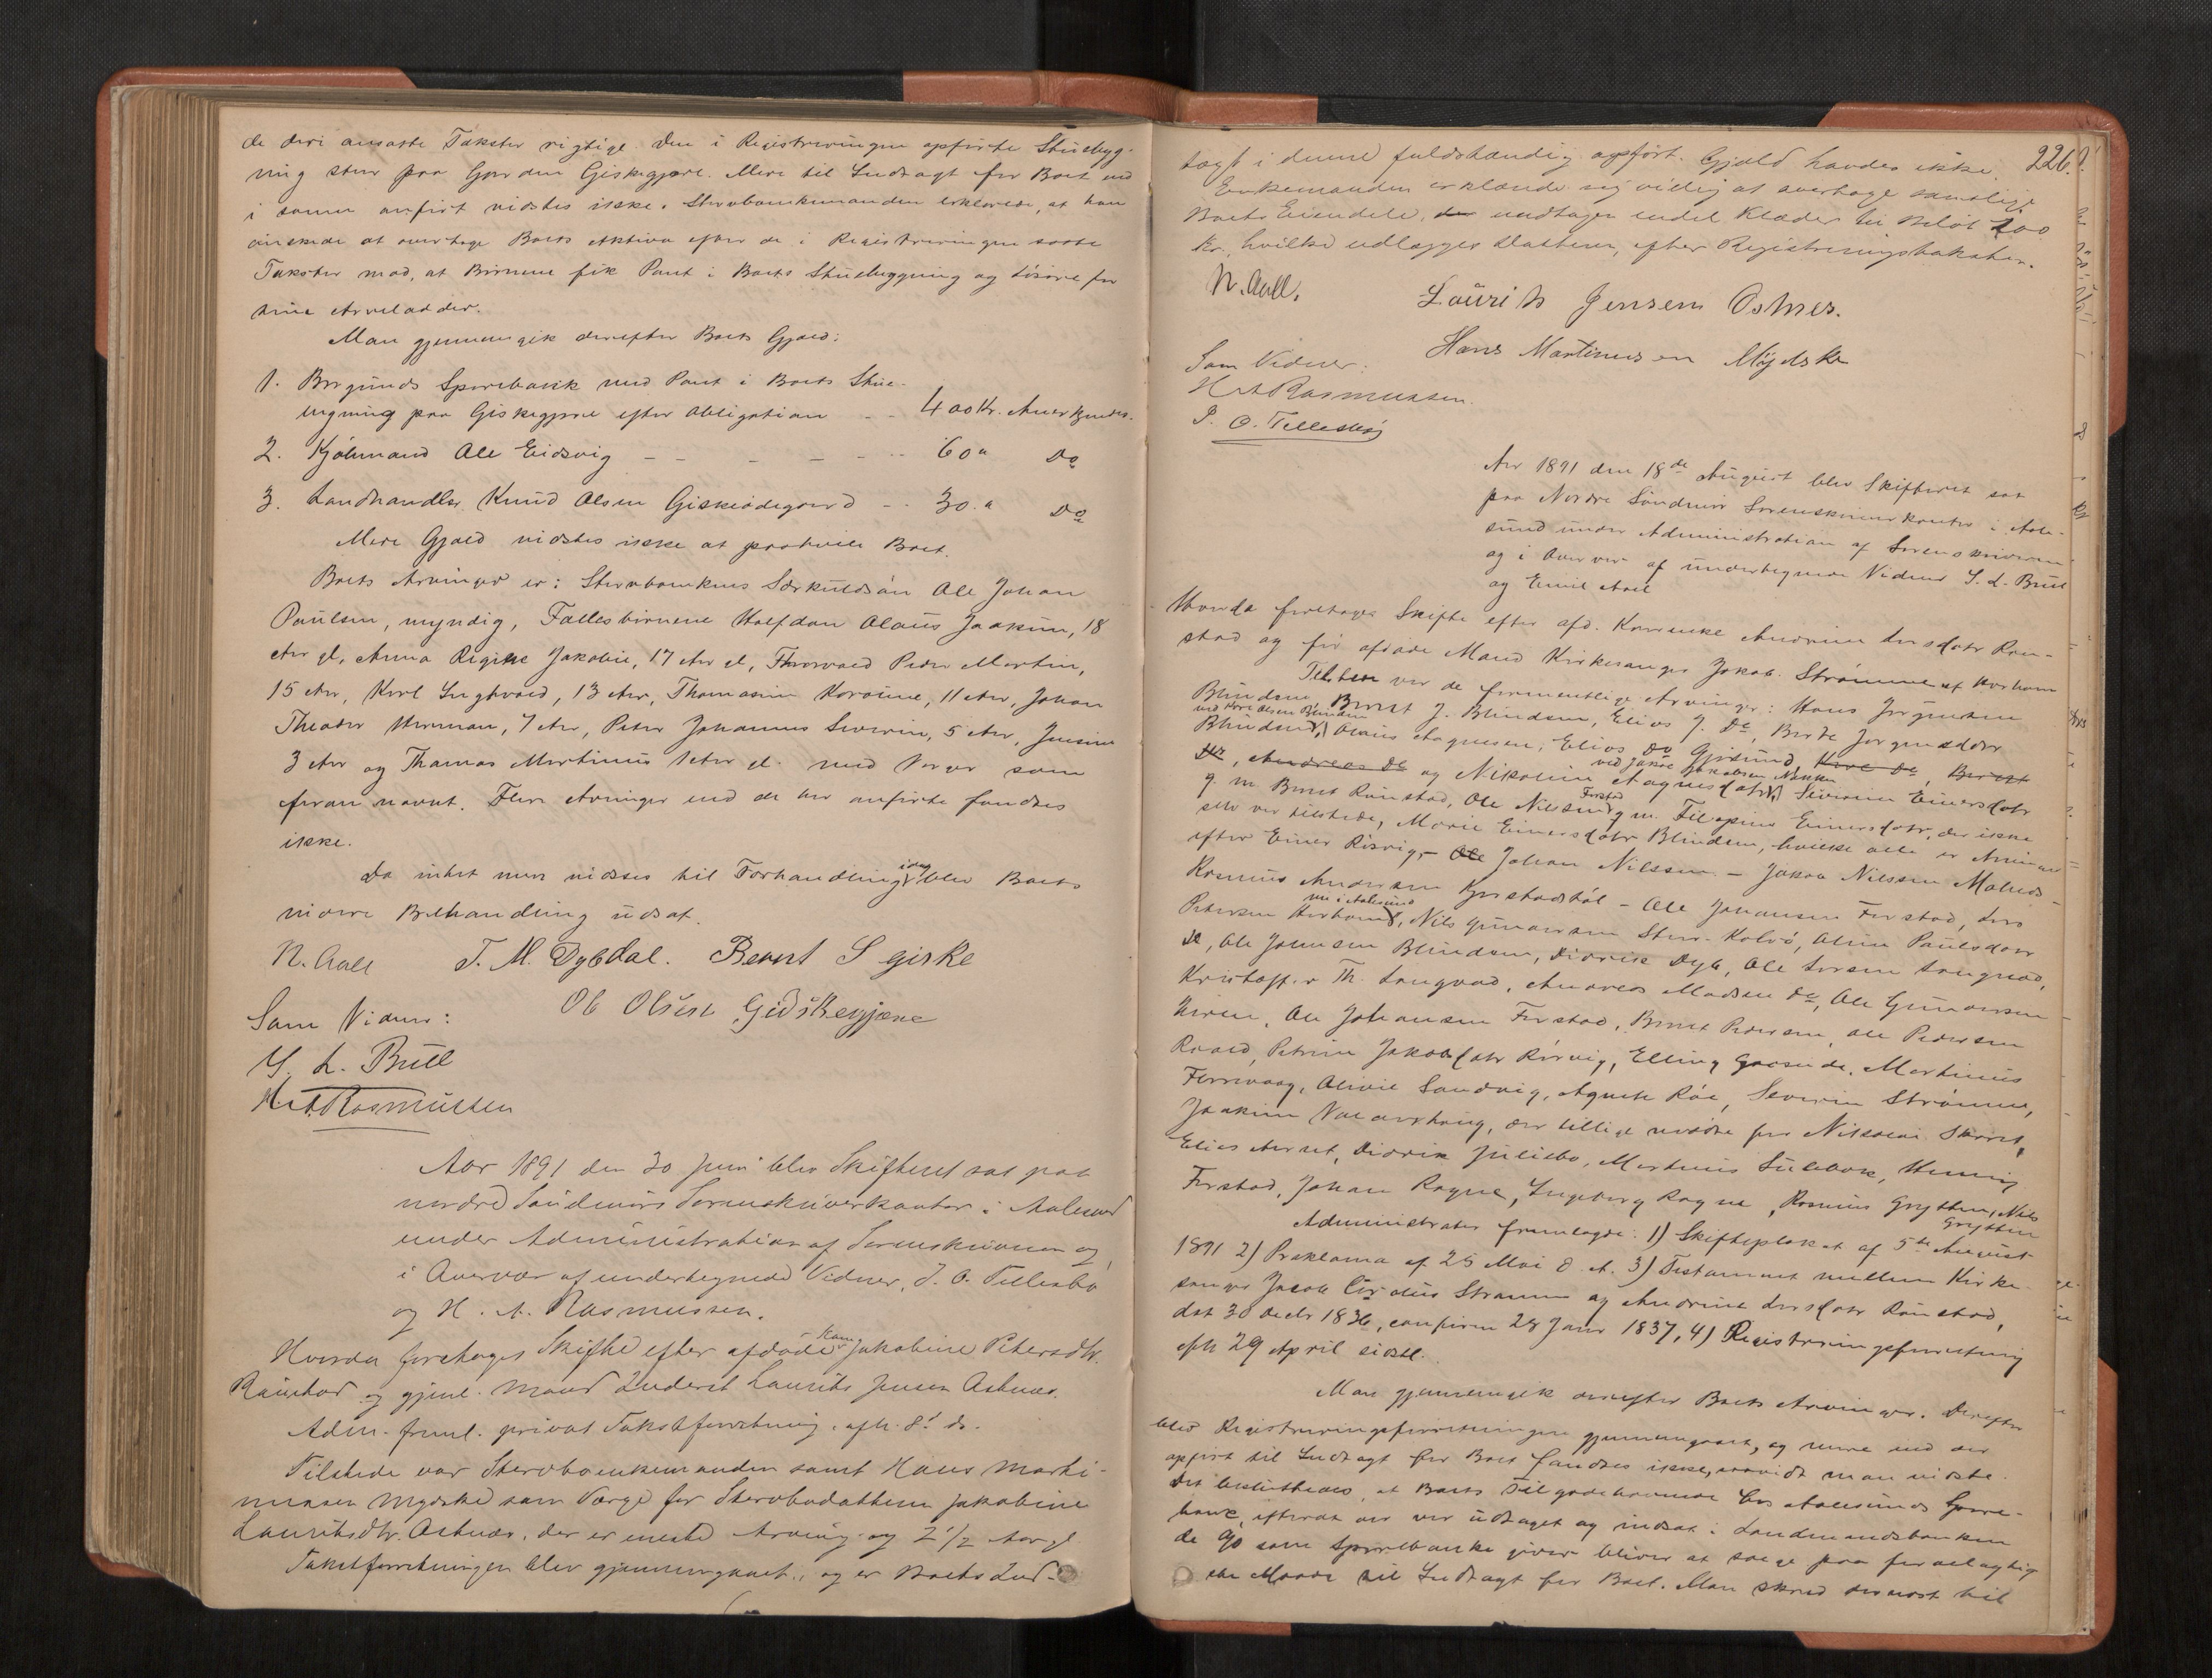 de deri ansatte Takster rigtige. Den i Registreringen opførte Stuebyg-
ning staar paa Gaarden Giskegjære. Mere til Indtægt for Boet end
i samme anført vidstes ikke. Stervboenkemanden erklærede, at han
ønskede at overtage Boets Aktiva efter de i Registreringen satte
Takster mod, at Børnene fik Pant i Boets Stuebygning og Løsøre for
sine Arvelodder.
Man gjennemgik derefter Boets Gjæld:
1. Borgunds Sparebank med Pant i Boets Stue-
bygning paa Giskegjære efter Obligation - - 400 Kr. Anerkjendes.
2. Kjøbmand Ole Eidsvig - - - - - - 60 " Do
3. Landhandler Knud Olsen Giskeødegaard - - 30 " Do
Mere Gjæld vidstes ikke at paahvile Boet.
Boets Arvinger er: Stervboenkens Særkuldsøn Ole Johan
Paulsen, myndig, Fællesbørnene Halfdan Olaus Joakim, 18
Aar gl, Anna Regine Jakobie, 17 Aar gl, Thorvald Peder Martin,
15 Aar, Karl Ingvald, 13 Aar, Thomasine Karoline, 11 Aar, Johan
Theodor Herman, 7 Aar, Peter Johannes Severin, 5 Aar, Jensine
3 Aar og Thomas Martinus 1 Aar gl. med Verger som
foran nævnt. Flere Arvinger end de her anførte fandtes
ikke.
Da intet mere vidstes til Forhandling idag blev Boets
videre Behandling udsat.
N. Aall T. M. Dybdal. Bernt S giske
Som Vidner: Ole Olsen Gidskegjære
S. L. Bull
H. A. Rasmussen
Aar 1891 den 30 Juni blev Skifteret sat paa
nordre Søndmørs Sorenskriverkontor i Aalesund
under Administration af Sorenskriveren og
i Overvær af undertegnede Vidner, J. O. Tellesbø
og H. A. Rasmussen.
Hvorda foretoges Skifte efter afdøde Kone Jakobine Petersdtr.
Raustad og gjenl. Mand Inderst Laurits Jensen Ostnes.
Adm. freml. privat Takstforretning, afh. 8' ds.
Tilstede var Stervboenkemanden samt Hans Marti-
nussen Myrske som Værge for Stervbodatteren Jakobine
Lauritsdtr. Ostnes, der er eneste Arving og 2 1/2 Aar gl.
Takstforretningen blev gjennemgaaet, og er Boets Ind-
226.
tægt i denne fuldstændig opført. Gjæld havdes ikke.
Enkemanden erklærede sig villig at overtage samtlige
Boets Eiendele, undtagen endel Klæder til Beløb 200
Kr, hvilke udlægges Datteren, efter Registreringstaksten.
N. Aall. Laurits Jensen Ostnes.
Hans Martinusen
Som Vidner:
H A Rasmussen.
J. O. Tellesbø
Aar 1891 den 18de August blev Skifteret sat
paa Nordre Søndmørs Sorenskriverkontor i Aale-
sund under Administration af Sorenskriveren
og i Overvær af undertegnede Vidner S. L. Bull
og Emil Aall
Hvorda foretages Skifte efter afd. Kaarenke Andrine Larsdatr Rau-
stad og før afdøde Mand Kirkesanger Jakob Strømme af Haram
Tilstede var de formentlige Arvinger: Hans Jørgensen
Blindem, Bernt J. Blindem, Elias J. Do, Berte Jørgensdatr
ved Kare Olsen Blindem
Blindem, Olaus Aagnesen, Elias Do Gjøsund, Karl Do, Berent
ved Jakob Jakobsen
Do, Andreas Do og Nikoline Aagnesdatr, Severine Einersdatr
g. m. Bernt Raustad, Ole Nilssen Farstad g. m. Filepine Einersdatr, der ikke
selv var tilstede, Marie Einersdatr Blindem, hvilke alle er Arvinger
efter Einer Risvig, - Ole Johan Nilssen - Jakob Nilssen
Rasmus Andersen - Ole Johansen Farstad, Lars
nu i Aalesund
Petersen, Nils Gunnarsen, Oline Paulsdatr
Do, Ole Johnsen Blindem, Didrik Dyb, Ole Larsen Longvad,
Kristoffer Th. Longvad, Andreas Madsen Do, Ole Gunnarsen
, Ole Johansen Farstad, Bernt Pedersen, Ole Pedersen
Roald, Petrine Jakobsdatr Rørvig, Elling Gaasnde, Martinus
, Olivie Sandvig, Agnete Røe, Severin Strømme,
Joakim, der tillige mødte for Nikolai,
Elias Aarset, Didrik Julebø, Martinus Sulebak, Henning
Farstad, Johan Rogne, Ingeborg Rogne, Rasmus Grytten, Nils
Grytten
Administrator fremlagde: 1) Skifteplakat af 5te August
1891 2) Proklama af 25 Mai d. A. 3) Testament mellem Kirke-
sanger Jacob Strømme og Andrine Larsdatr Raustad,
dat 30 Decbr 1836, confirm 28 Janr 1837, 4) Registreringsforretning
afh 29 April sidstl.
Man gjennemgik derefter Boets Arvinger. Derefter
blev Registreringsforretningen gjennemgaaet, og mere end der
opført til Indtægt for Boet fandtes ikke, saavidt man vidste.
Det besluttedes, at Boets Tilgodehavende hos Aalesunds Spare-
bank, efterat der var udtaget og indsat i Landmandsbanken
de 90 som Sparebanken giver bliver at sælge paa fordelagtig
ste Maade til Indtægt for Boet. Man skred dernæst til